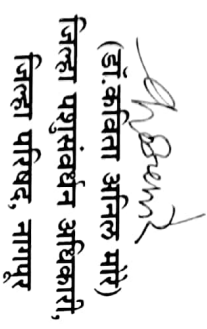 (डॉ.कविता अनिल मोरे)
जिल्हा पशुसंवर्धन अधिकारी,
जिल्हा परिषद, नागपूर